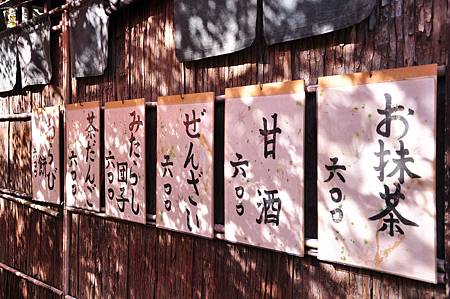 お抹茶
六〇〇
甘酒
六〇〇
ぜんざい
六〇〇
みたらし団子
六〇〇
茶だんご
六〇〇
わらび餅